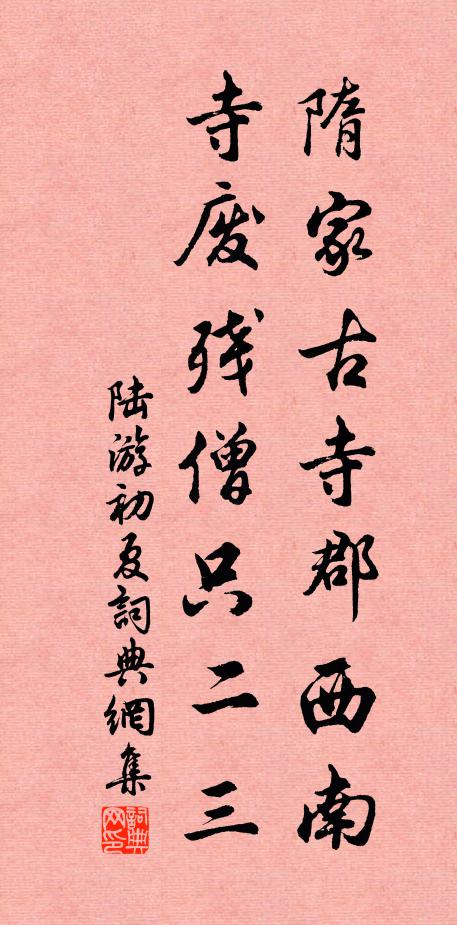 隋家古寺郡西南
寺废残僧只二三
陆游初夏詞典網集
詞典网印